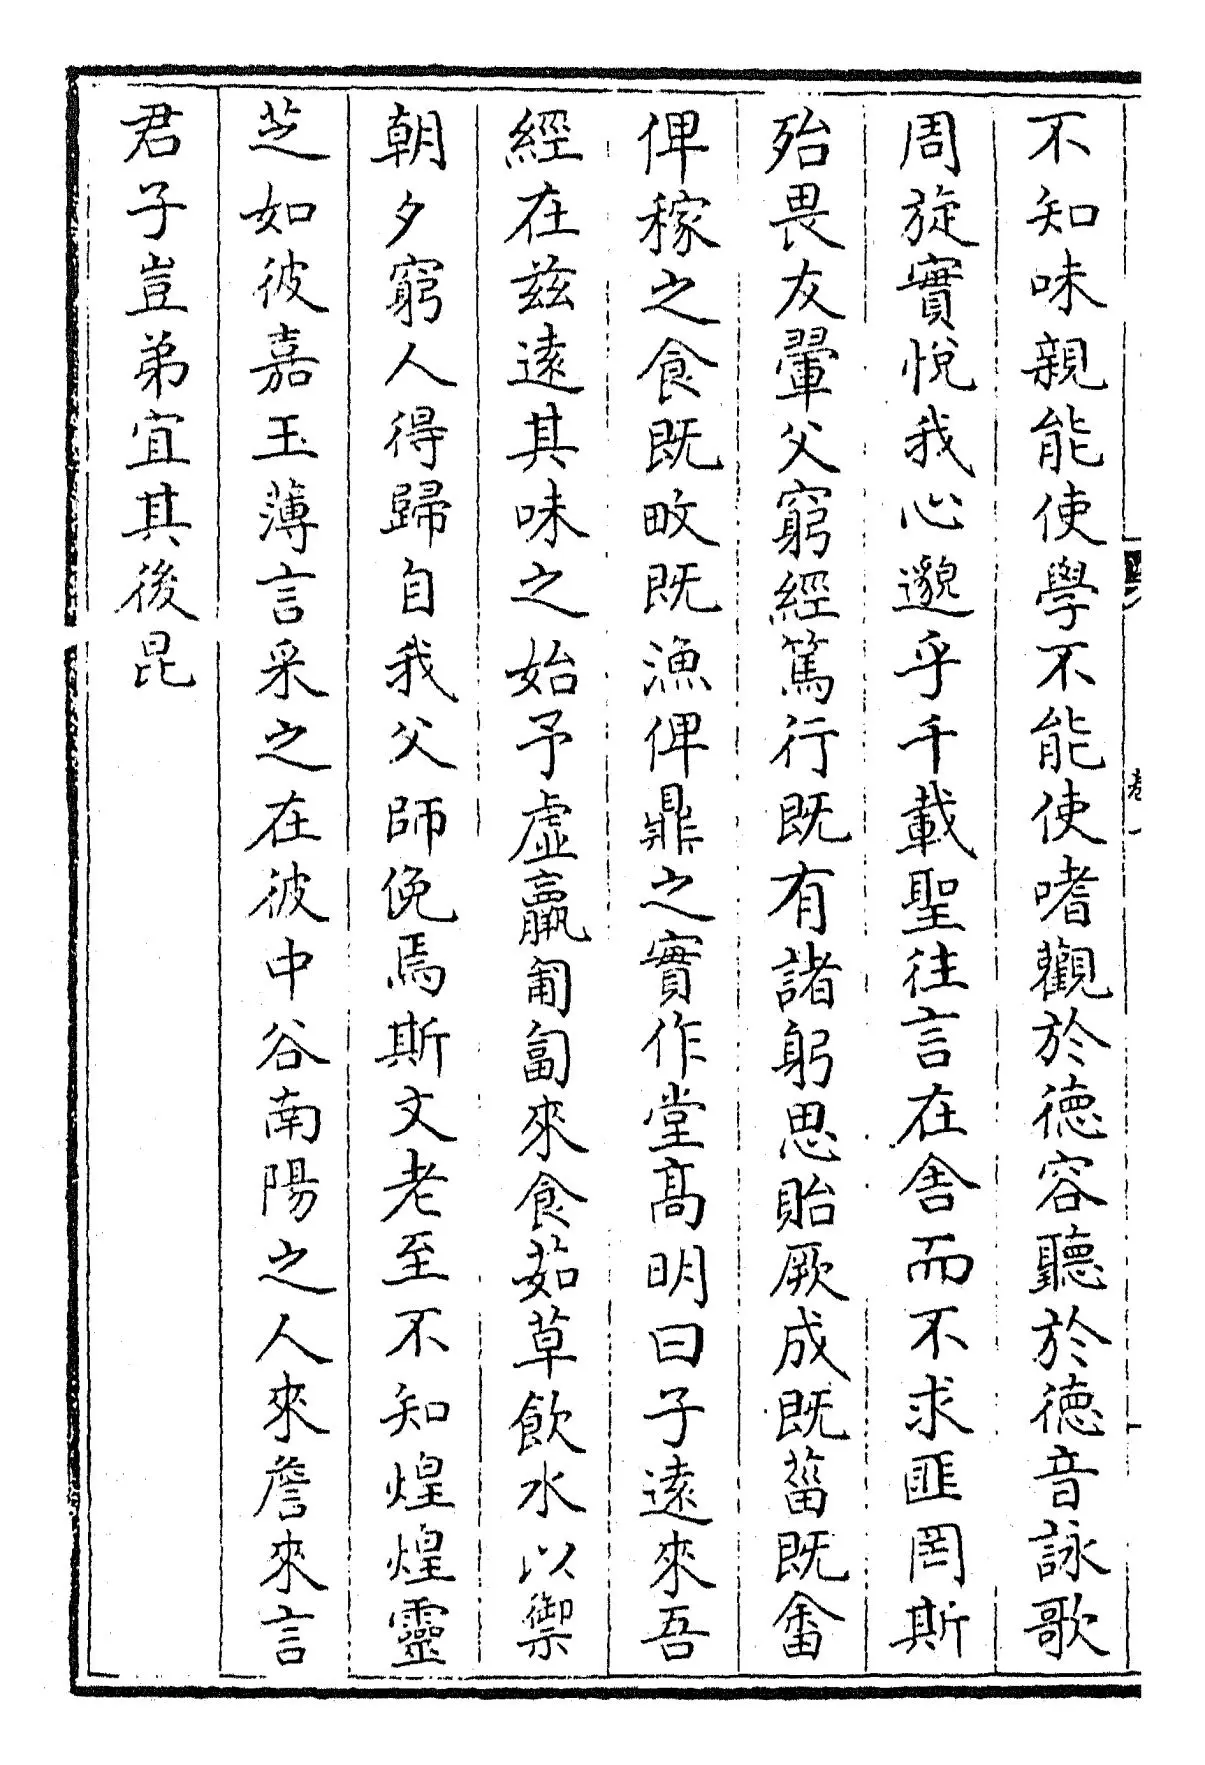 不知味親能使學不能使嗜觀於德容聽於德音詠歌
周旋實悅我心邈乎千載聖往言在舍而不求匪罔斯
殆畏友翬父窮經篤行既有諸躬思貽厥成既菑既畬
俾稼之食既畋既漁俾鼎之實作堂高明曰子遠來吾
經在兹遠其味之始予虛羸匍匐來食茹草飲水以禦
朝夕窮人得歸自我父師俛焉斯文老至不知煌煌靈
芝如彼嘉玉薄言采之在彼中谷南陽之人來詹來言
君子豈弟宜其後昆